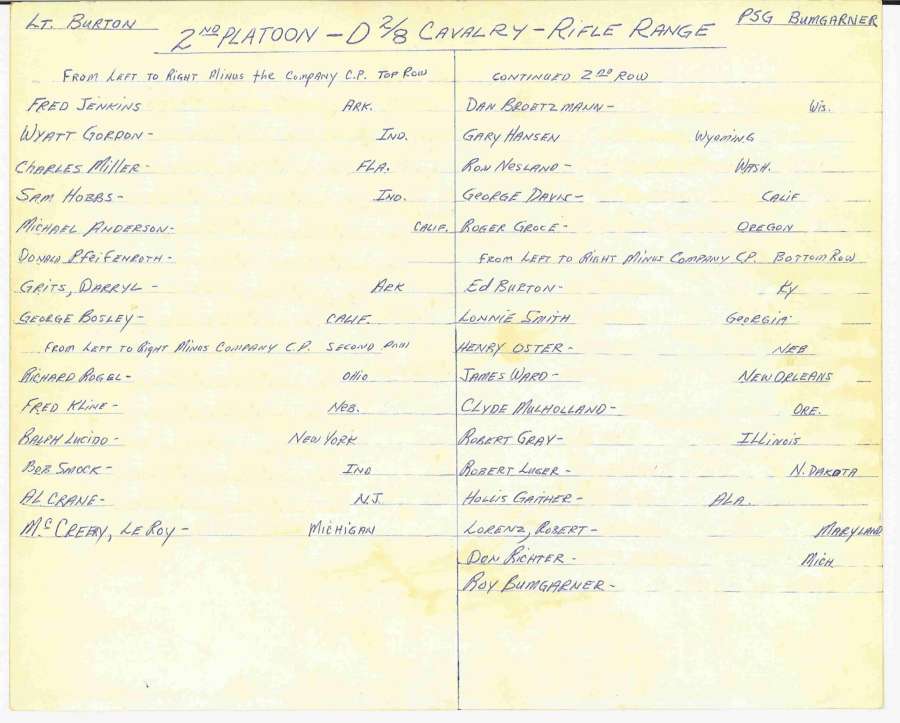 Lt. Burton
PSG Bumgarner
2ND Platoon - D 2/8 Cavalry - Rifle Range
From Left to Right Minus the Company C.P. Top Row
Fred Jenkins Ark.
Wyatt Gordon - Ind.
Charles Miller - Fla.
Sam Hobbs - Ind.
Michael Anderson - Calif.
Donald Pfeifenroth -
Grits, Darryl - Ark
George Bosley - Calif.
From Left to Right Minus Company C.P. Second Row
Richard Rogel - Ohio
Fred Kline - Neb.
Ralph Lucido - New York
Bob Smock - Ind
Al Crane - N.J.
McCreery, LeRoy - Michigan
Continued 2ND Row
Dan Broetzmann - Wis.
Gary Hansen Wyoming
Ron Nesland - Wash.
George Davis - Calif
Roger Groce - Oregon
From Left to Right Minus Company C.P. Bottom Row
Ed Burton - Ky
Lonnie Smith Georgia
Henry Oster - Neb
James Ward - New Orleans
Clyde Mulholland - Ore.
Robert Gray - Illinois
Robert Luger - N. Dakota
Hollis Gaither - Ala.
Lorenz, Robert - Maryland
Don Richter - Mich.
Roy Bumgarner -